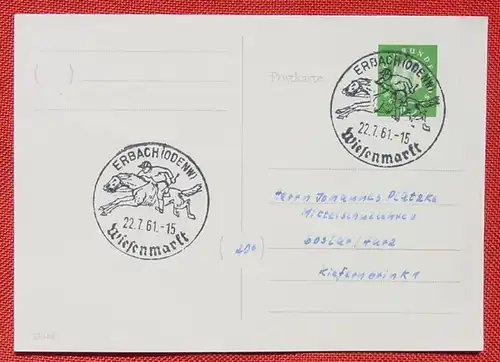 BUNDES
Postkarte
ERBACH (ODENW)
22.7.61.-15
Wiesenmarkt
ERBACH (ODENW)
22.7.61.-15
Wiesenmarkt
Herrn Johannes Platzke
Mittelschullehrer
(20b) Goslar/Harz
Kiefernbrink 1